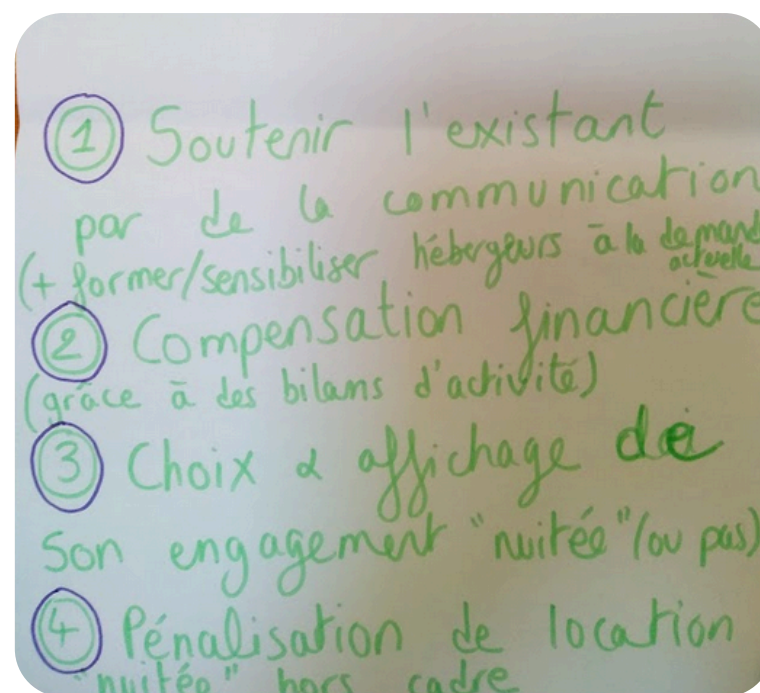 ① Soutenir l'existant
par de la communication
(+ former/sensibiliser hébergeurs à la demand
actuelle
② Compensation financière
(grâce à des bilans d'activité)
③ Choix & affichage de
son engagement "nuitée" (ou pas)
④ Pénalisation de location
"nuitée" hors cadre